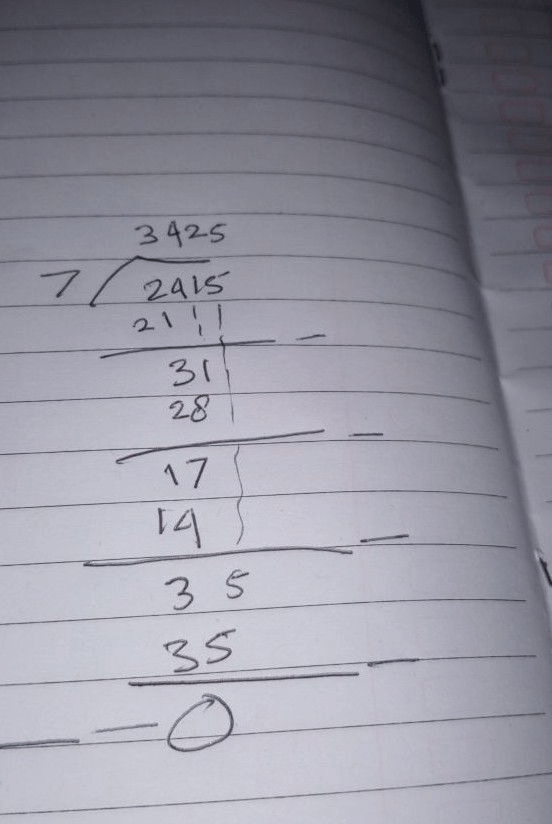 3425
7 2415
21
31
28
17
14
35
35
0